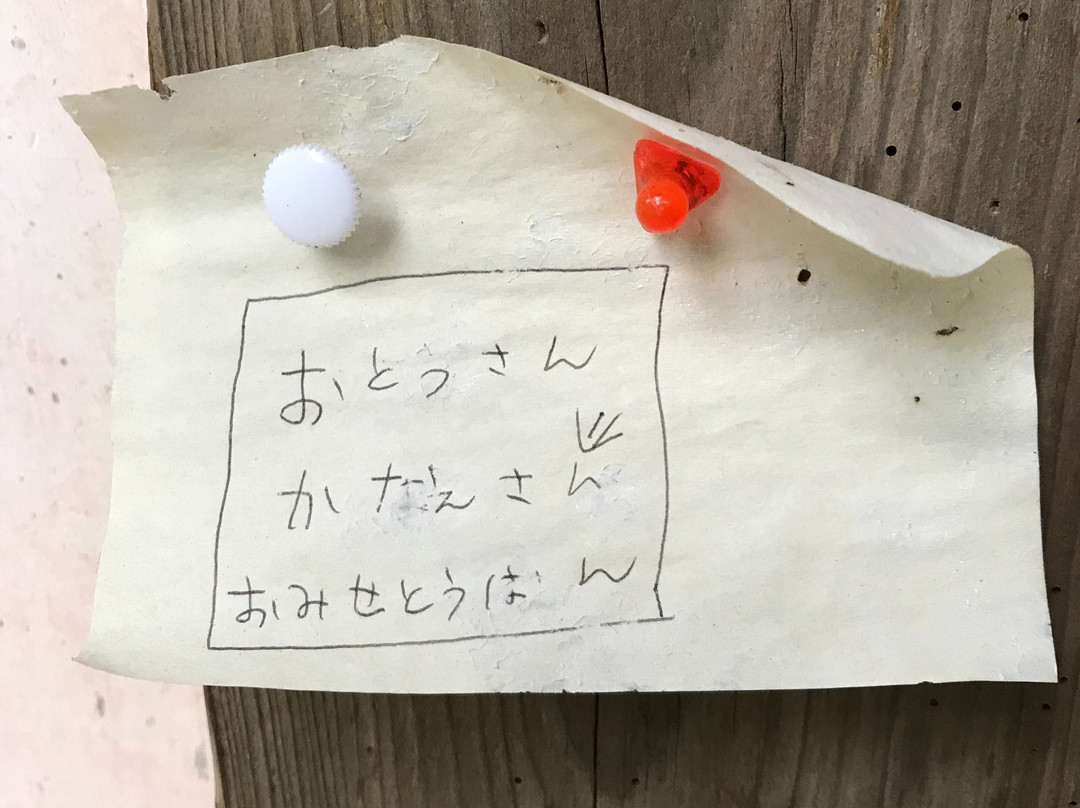 おとうさん
かなえさん
おみせとうばん